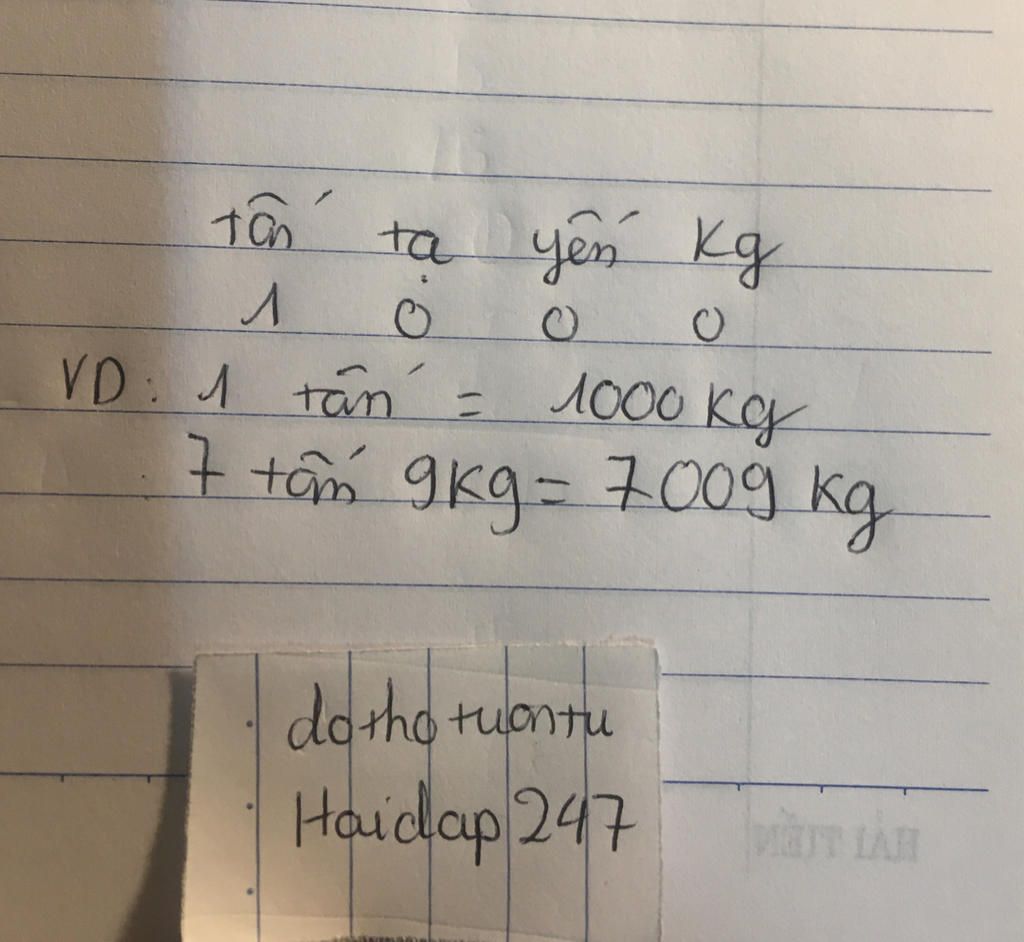 tấn tạ yến Kg
1 0 0 0
VD: 1 tấn = 1000 Kg
7 tấn 9Kg = 7009 Kg
dothotuantu
Hoidap247
HẢI TIẾN